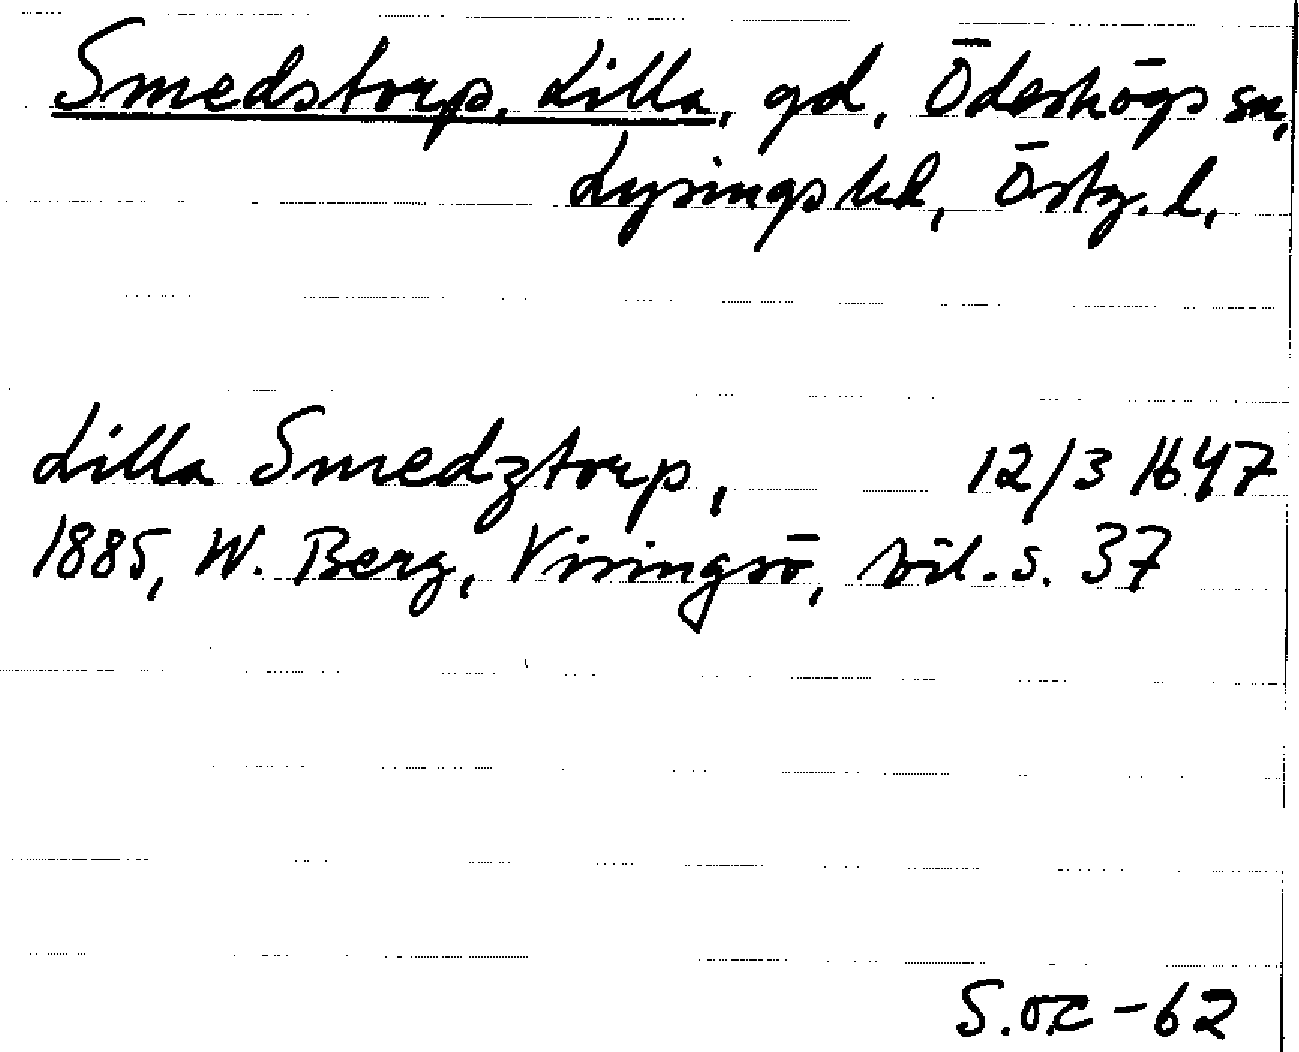 Smedstorp, Lilla, gd, Ödeshögs sn,
Lysings hd, Östg. l,
Lilla Smedztorp, 12/3 1647
1885, W. Berg, Visingsö, bil. s. 37
S. -62